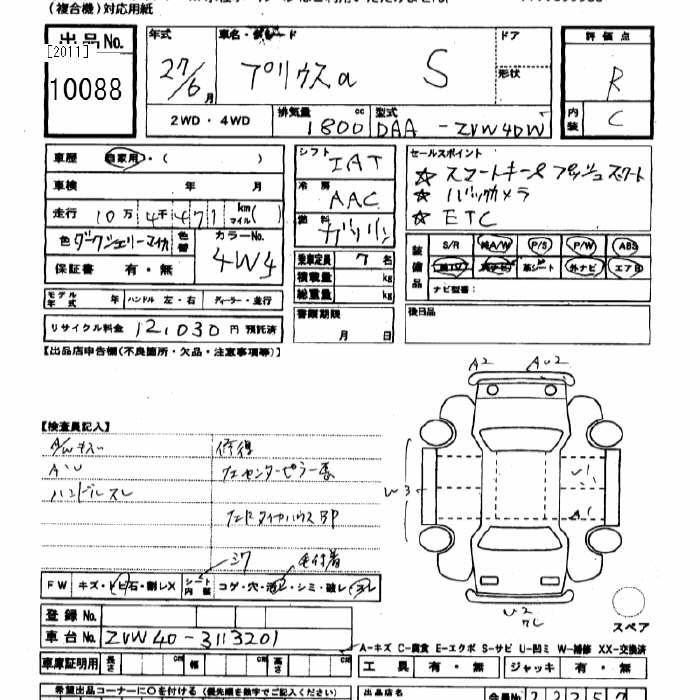 (複合機)対応用紙
出品No.
[2011]
10088
年式
27/6 月
車名・グレード
プリウスα S
ドア
形状
評価点
R
内装 C
2WD・4WD
排気量 1800 cc
型式 DAA-ZVW40W
車歴 自家用・( )
車検 年 月
走行 10万4千471 km マイル( )
色 ダークシェリーマイカ
色替
カラーNo. 4W4
保証書 有・無
モデル年式 年 ハンドル 左・右 ディーラー・並行
リサイクル料金 12,030 円 預託済
シフト IAT
冷房 AAC
燃料 ガソリン
乗車定員 7 名
積載量 kg
総重量 kg
書類期限
月 日
セールスポイント
☆ スマートキー& プッシュスタート
☆ バックカメラ
☆ ETC
装備品
S/R 純A/W P/S P/W ABS
純TV 純ナビ 革シート 外ナビ エアB
ナビ型番:
後日品
【出品店申告欄(不良箇所・欠品・注意事項等)】
【検査員記入】
A/Wキズ
AU
ハンドルスレ
修復
センターピラー
タイヤハウス
A2
U2
W3
U1
A1
U2
スペア
FW キズ・ヒビ石・割レX シート内張 コゲ・穴・汚レ・シミ・破レ・スレ
登録No.
車台No. ZVW40-3113201
車庫証明用 長さ cm 幅 cm 高さ cm
A-キズ C-腐食 E-エクボ S-サビ U-凹ミ W-補修 XX-交換済
工具 有・無 ジャッキ 有・無
希望出品コーナーに○を付ける(優先順を数字で書く)
出品店名
会員No.